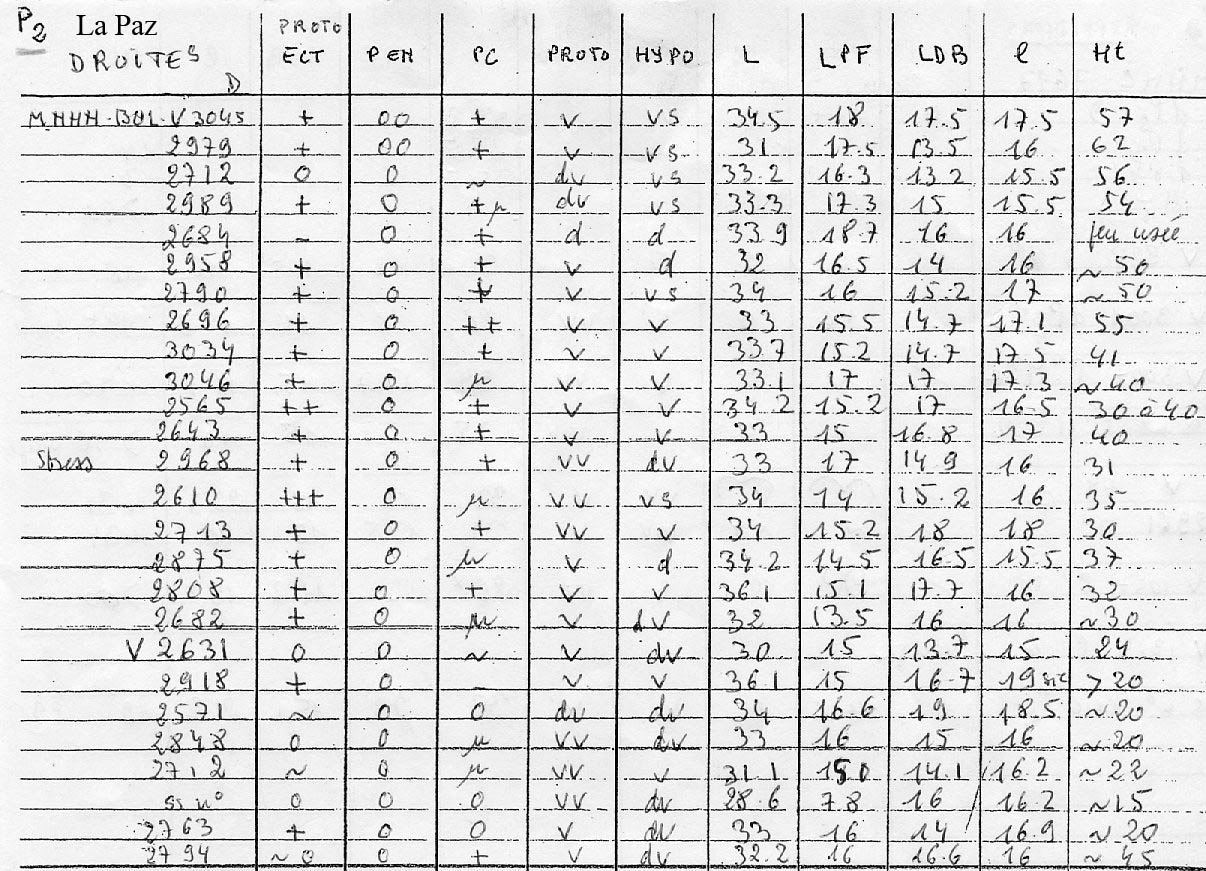 P2 La Paz PROTO
DROITES D ECT PEN PC PROTO HYPO L LPF LDB l Ht
M.NHN.BOL.V 3045 + 00 + v vs 34.5 18 17.5 17.5 57
2979 + 00 + v vs 31 17.5 13.5 16 62
2712 0 0 ~ dv vs 33.2 16.3 13.2 15.5 56
2989 + 0 +µ dv vs 33.3 17.3 15 15.5 54
2684 - 0 + d d 33.9 18.7 16 16 peu usée
2958 + 0 + v d 32 16.5 14 16 ~50
2790 + 0 + v vs 34 16 15.2 17 ~50
2696 + 0 ++ v v 33 15.5 14.7 17.1 55
3034 + 0 + v v 33.7 15.2 14.7 17.5 41
3046 + 0 µ v v 33.1 17 17 17.3 ~40
2565 ++ 0 + v v 34.2 15.2 17 16.5 30 à 40
2643 + 0 + v v 33 15 16.8 17 40
Stress 2968 + 0 + vv dv 33 17 14.9 16 31
2610 +++ 0 µ vv vs 34 14 15.2 16 35
2713 + 0 + vv v 34 15.2 18 18 30
2875 + 0 µ v d 34.2 14.5 16.5 15.5 37
2808 + 0 + v v 36.1 15.1 17.7 16 32
2682 + 0 µ v dv 32 13.5 16 16 ~30
V 2631 0 0 ~ v dv 30 15 13.7 15 24
2918 + 0 - v v 36.1 15 16.7 19 sic >20
2571 ~ 0 0 dv dv 34 16.6 19 18.5 ~20
2848 0 0 µ vv dv 33 16 15 16 ~20
2712 ~ 0 µ vv v 31.1 150 14.1 16.2 ~22
ss n° 0 0 0 vv dv 28.6 7.8 16 16.2 ~15
2763 + 0 0 v dv 33 16 14 16.9 ~20
2794 ~0 0 + v dv 32.2 16 16.6 16 ~45